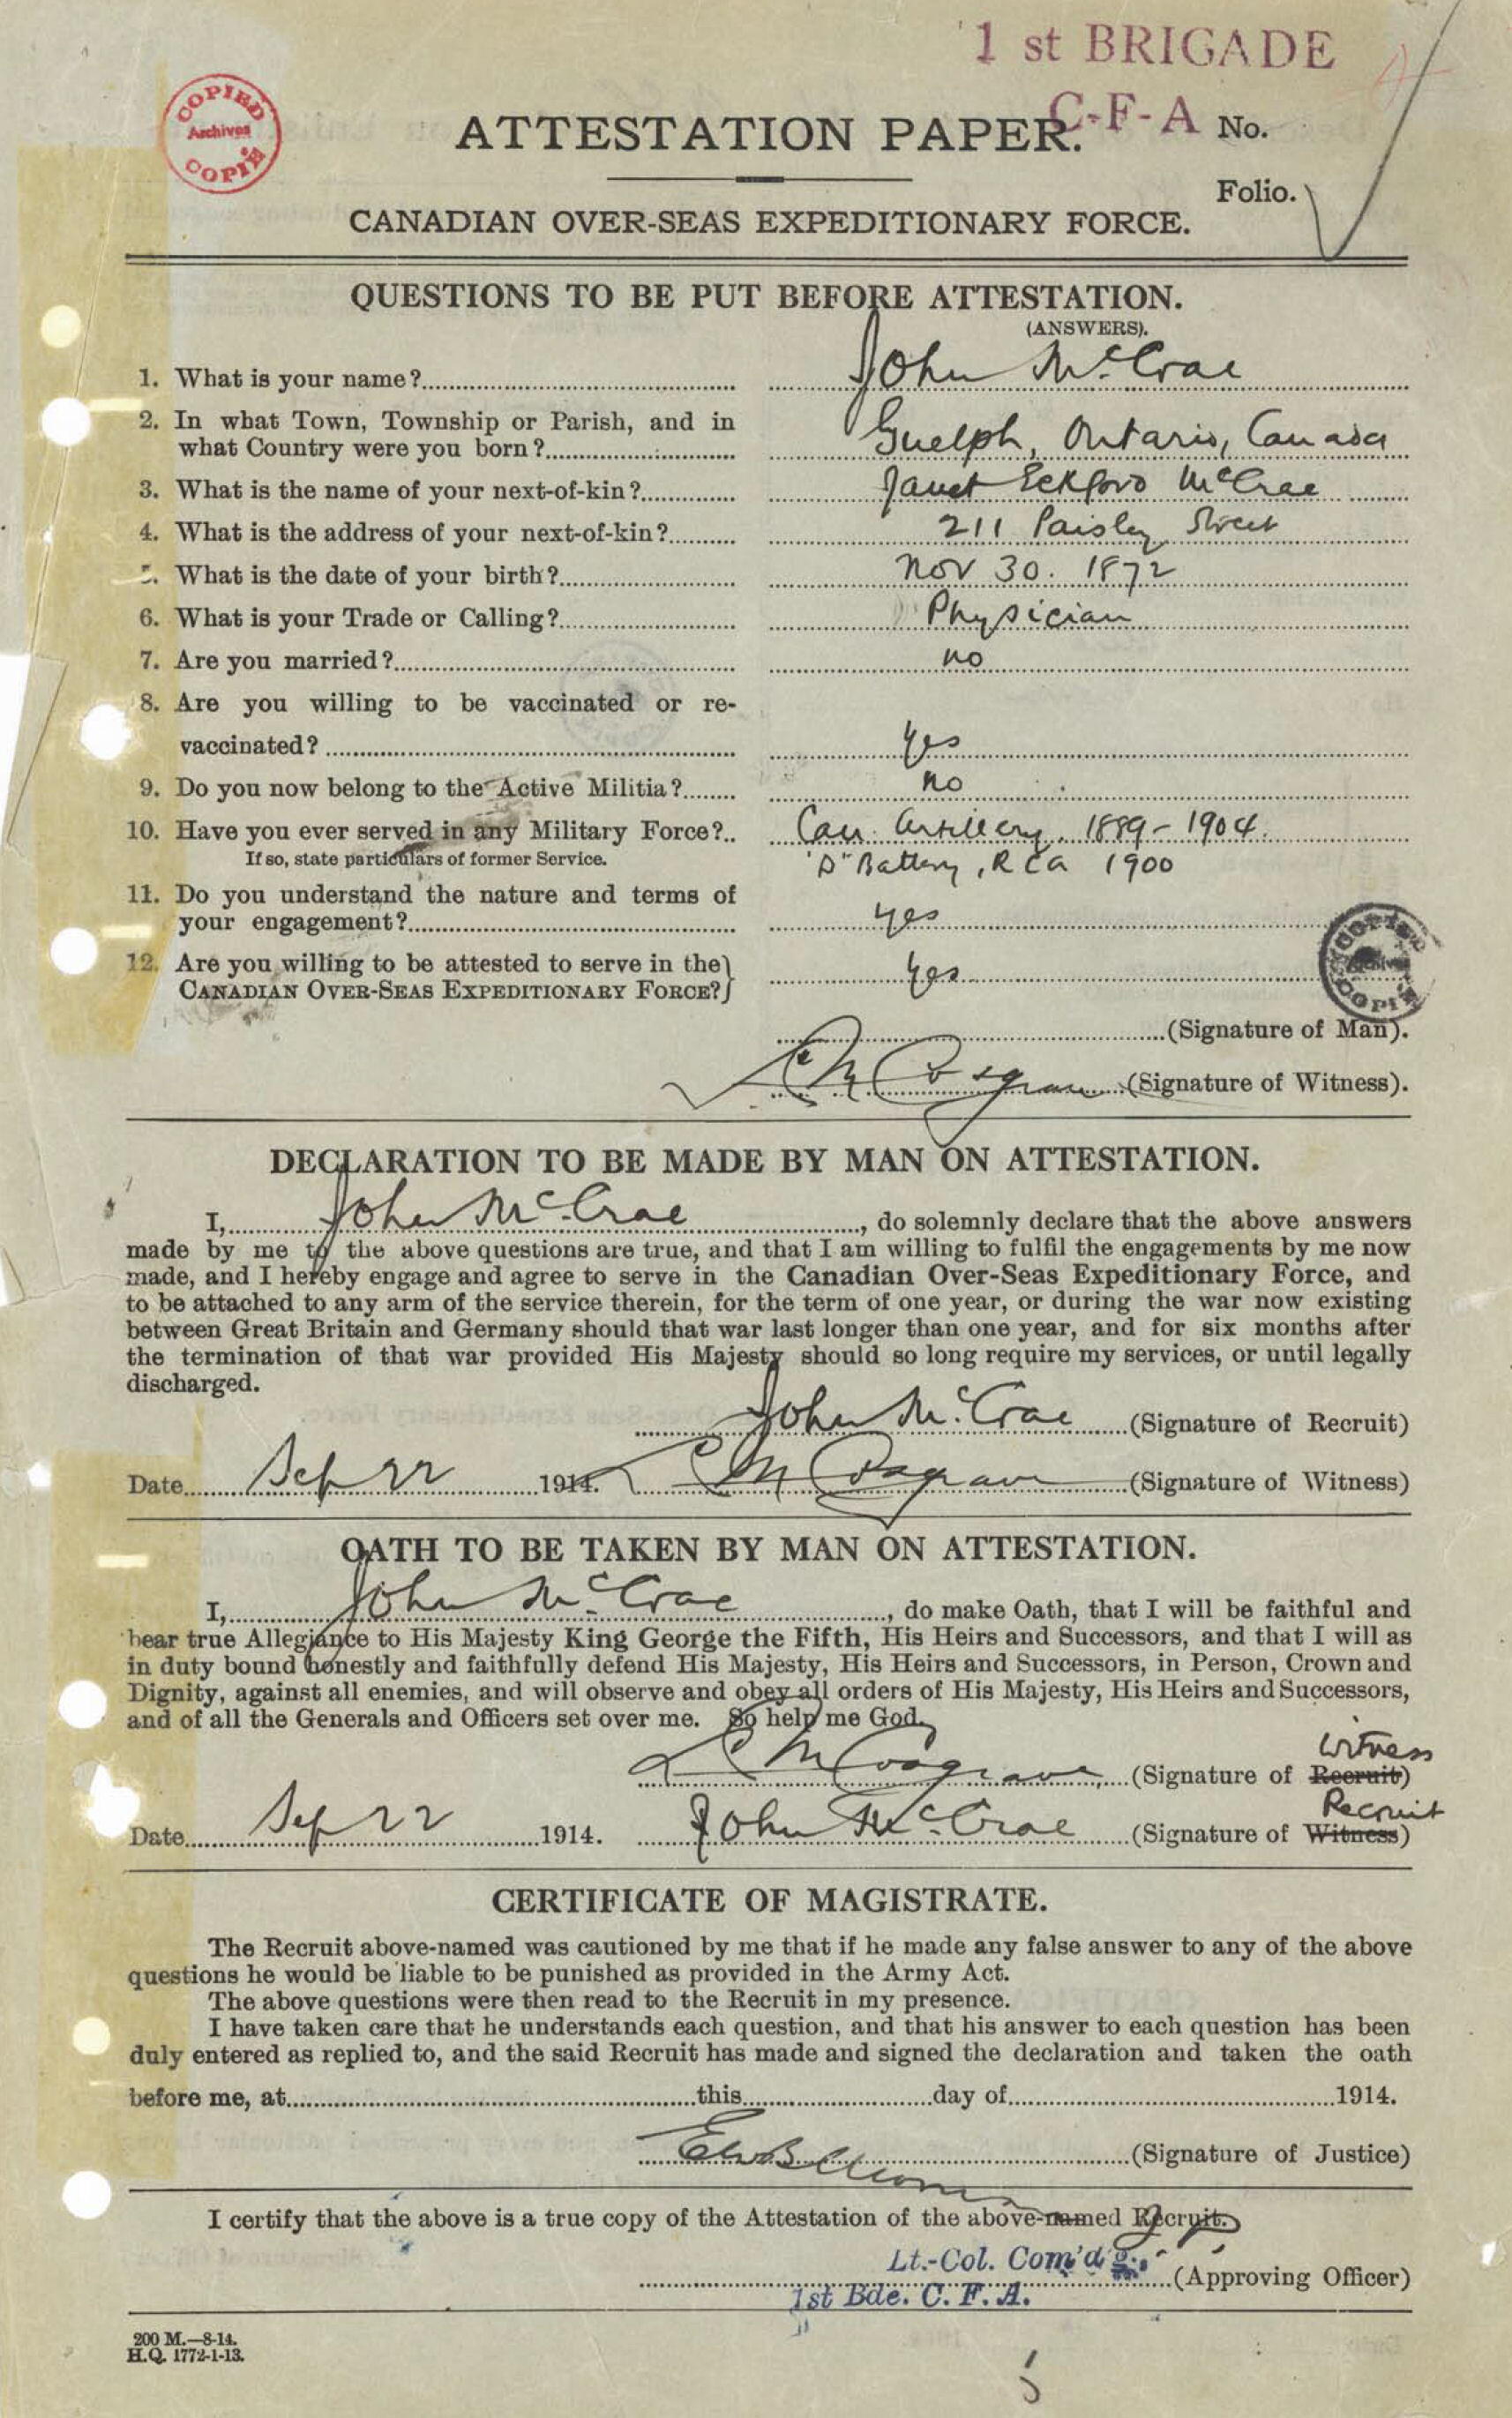 1 st BRIGADE
C-F-A
COPIED
Archives
COPIE
ATTESTATION PAPER.
No.
Folio.
CANADIAN OVER-SEAS EXPEDITIONARY FORCE.
QUESTIONS TO BE PUT BEFORE ATTESTATION.
(ANSWERS).
1. What is your name? John McCrae
2. In what Town, Township or Parish, and in
what Country were you born? Guelph, Ontario, Canada
3. What is the name of your next-of-kin? Janet Eckford McCrae
4. What is the address of your next-of-kin? 211 Paisley Street
5. What is the date of your birth? Nov 30. 1872
6. What is your Trade or Calling? Physician
7. Are you married? no
8. Are you willing to be vaccinated or re-
vaccinated? Yes
9. Do you now belong to the Active Militia? no
10. Have you ever served in any Military Force? Can. Artillery. 1889-1904.
If so, state particulars of former Service. "D" Battery, RCA 1900
11. Do you understand the nature and terms of
your engagement? yes
12. Are you willing to be attested to serve in the
CANADIAN OVER-SEAS EXPEDITIONARY FORCE? Yes
COPIED
COPIE
(Signature of Man).
L C M Cosgrave (Signature of Witness).
DECLARATION TO BE MADE BY MAN ON ATTESTATION.
I, John McCrae, do solemnly declare that the above answers
made by me to the above questions are true, and that I am willing to fulfil the engagements by me now
made, and I hereby engage and agree to serve in the Canadian Over-Seas Expeditionary Force, and
to be attached to any arm of the service therein, for the term of one year, or during the war now existing
between Great Britain and Germany should that war last longer than one year, and for six months after
the termination of that war provided His Majesty should so long require my services, or until legally
discharged.
John McCrae (Signature of Recruit)
Date Sep 22 1914. L C M Cosgrave (Signature of Witness)
OATH TO BE TAKEN BY MAN ON ATTESTATION.
I, John McCrae, do make Oath, that I will be faithful and
bear true Allegiance to His Majesty King George the Fifth, His Heirs and Successors, and that I will as
in duty bound honestly and faithfully defend His Majesty, His Heirs and Successors, in Person, Crown and
Dignity, against all enemies, and will observe and obey all orders of His Majesty, His Heirs and Successors,
and of all the Generals and Officers set over me. So help me God.
Witness
L C M Cosgrave (Signature of Recruit)
Recruit
Date Sep 22 1914. John McCrae (Signature of Witness)
CERTIFICATE OF MAGISTRATE.
The Recruit above-named was cautioned by me that if he made any false answer to any of the above
questions he would be liable to be punished as provided in the Army Act.
The above questions were then read to the Recruit in my presence.
I have taken care that he understands each question, and that his answer to each question has been
duly entered as replied to, and the said Recruit has made and signed the declaration and taken the oath
before me, at this day of 1914.
(Signature of Justice)
I certify that the above is a true copy of the Attestation of the above-named Recruit.
Lt.-Col. Com'd'g.
(Approving Officer)
1st Bde. C. F. A.
200 M.—8-14.
H.Q. 1772-1-13.